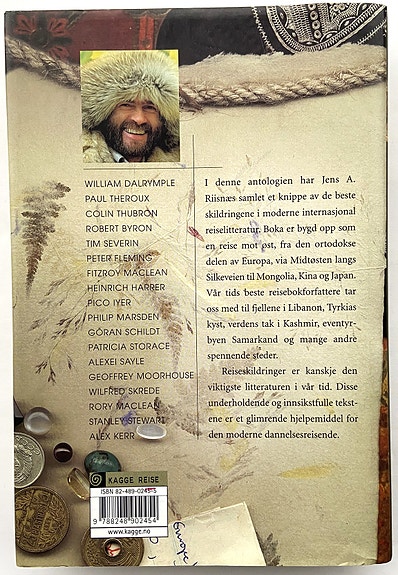 WILLIAM DALRYMPLE
PAUL THEROUX
COLIN THUBRON
ROBERT BYRON
TIM SEVERIN
PETER FLEMING
FITZROY MACLEAN
HEINRICH HARRER
PICO IYER
PHILIP MARSDEN
GÖRAN SCHILDT
PATRICIA STORACE
ALEXEI SAYLE
GEOFFREY MOORHOUSE
WILFRED SKREDE
RORY MACLEAN
STANLEY STEWART
ALEX KERR
I denne antologien har Jens A.
Riisnæs samlet et knippe av de beste
skildringene i moderne internasjonal
reiselitteratur. Boka er bygd opp som
en reise mot øst, fra den ortodokse
delen av Europa, via Midtøsten langs
Silkeveien til Mongolia, Kina og Japan.
Vår tids beste reisebokforfattere tar
oss med til fjellene i Libanon, Tyrkias
kyst, verdens tak i Kashmir, eventyr-
byen Samarkand og mange andre
spennende steder.
Reiseskildringer er kanskje den
viktigste litteraturen i vår tid. Disse
underholdende og innsiktsfulle tekst-
ene er et glimrende hjelpemiddel for
den moderne dannelsesreisende.
KAGGE REISE
ISBN 82-489-0245-5
9 788248 902454
www.kagge.no